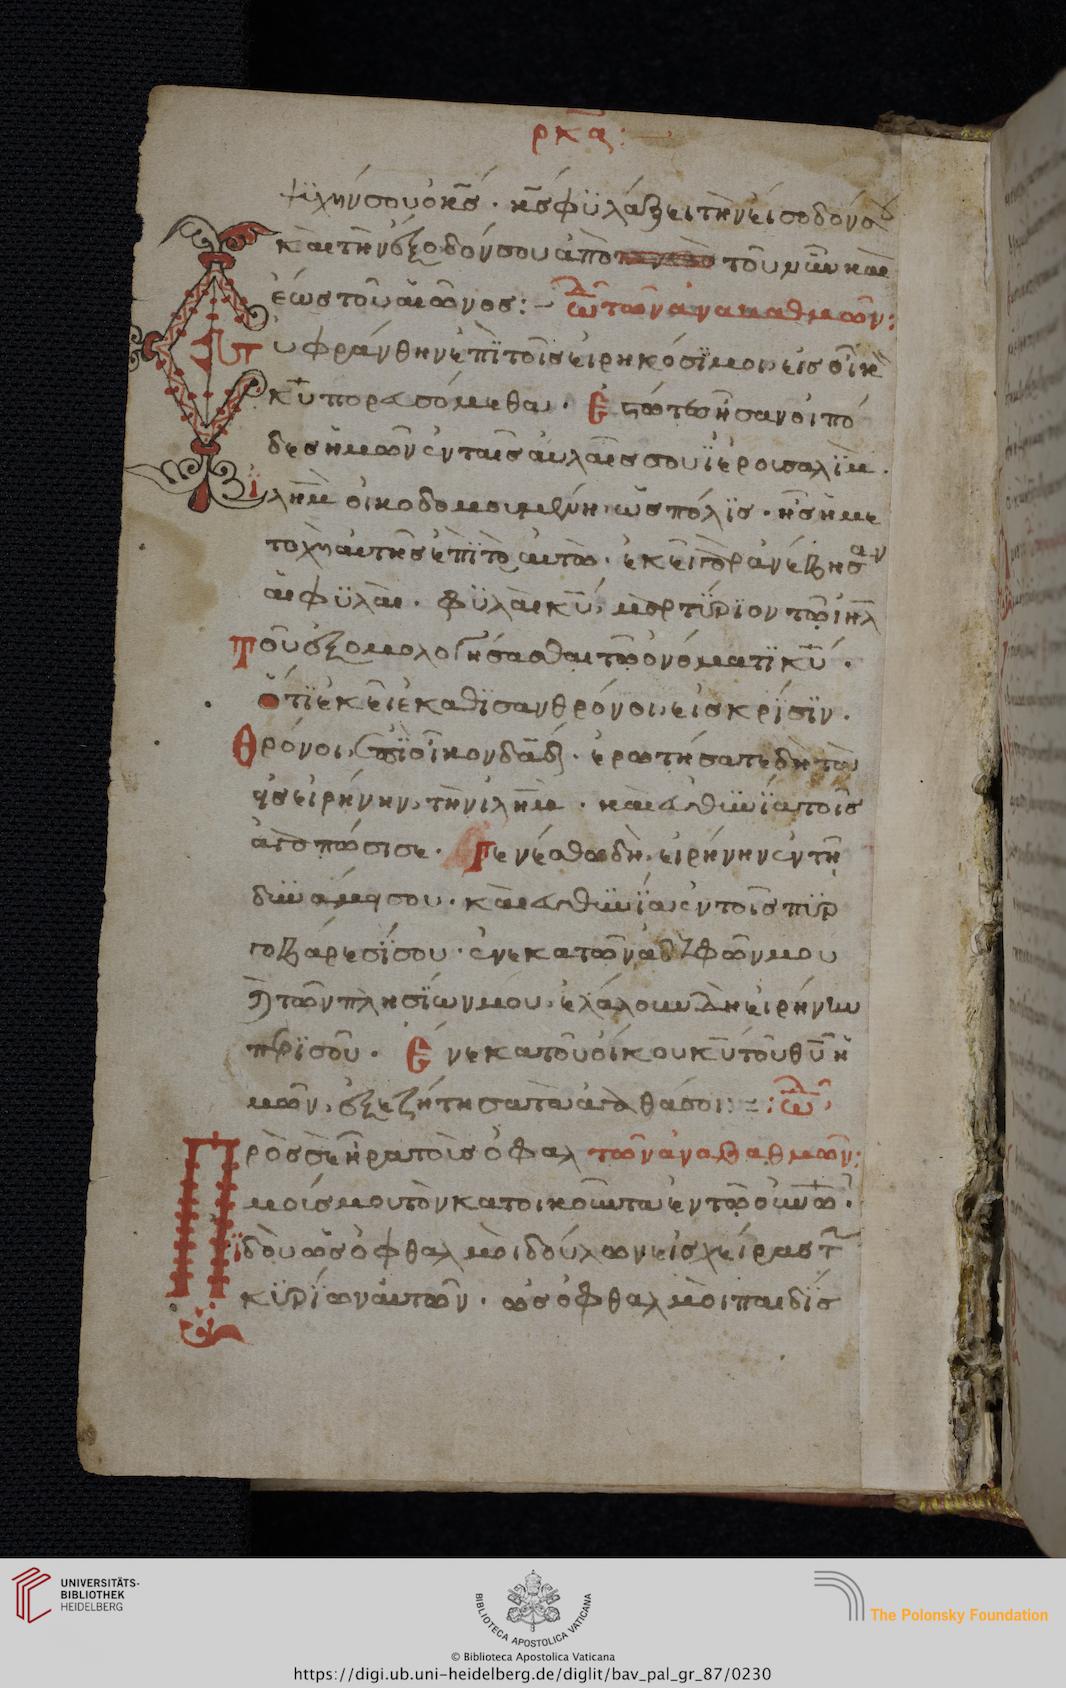 ρκα:
ψϋχήν σου ὁ κς̄ · κς̄ φϋλάξει τὴν εἴσοδόν σου
καὶ τὴν ἔξοδόν σου ἀπὸ τοῦ νῦν καὶ
ἕως τοῦ αἰῶνος :– ὠδὴ τῶν ἀναβαθμῶν:
Ευφράνθην ἐπὶ τοῖς εἰρηκόσϊ μοι, εἰς οἶκον
κῡ πορευσόμεθα · Ἑστῶτες ἦσαν οἱ πό
δες ἡμῶν ἐν ταῖς αὐλαῖς σου ϊερουσαλϊμ ·
ϊλημ οἰκοδομουμένη ὡς πόλϊς · ἧς ἡ με
τοχὴ αὐτῆς ἐπὶ τὸ αὐτῶ · ἐκεῖ γὰρ ἀνέβησαν
αἱ φϋλαὶ · φϋλαὶ κῡ, μαρτϋρϊον τῶ ιηλ
Τοῦ ἐξομολογήσασθαι τῶ ὀνόματϊ κῡ ·
ὅτϊ ἐκεῖ ἐκαθϊσαν θρόνοι, εἰς κρίσϊν ·
Θρόνοι ἐπϊ οἶκον δαδ · ἐρωτήσατε δὴ τὰ
εἰς εἰρήνην, τὴν ιλημ · καὶ εὐθϋνϊα τοῖς
ἀγαπῶσι σε · Γενέσθω δὴ, εἰρήνην ἐν τῆ
δϋνάμει σου · καὶ εὐθϋνϊα, ἐν τοῖς πϋρ
γοβάρεσϊ σου · ἕνεκα τῶν ἀδελφῶν μου
καὶ τῶν πλησϊων μου, ἐλάλουν δὴ εἰρήνην
περὶ σοῦ · Ἕνεκα τοῦ οἴκου κῡ τοῦ θῡ ἡ
μῶν, ἐξεζήτησα τὰ ἀγαθά σοι :– : ὠδὴ
Πρὸς σὲ ἦρα τοὺς ὀφθαλ τῶν ἀναβαθμῶν:
μούς μου τὸν κατοικοῦντα ἐν τῶ οὐνῶ ·
ϊδοὺ ὡς ὀφθαλμοὶ δούλων εἰς χεῖρας τῶν
κϋρϊων αὐτῶν · ὡς ὀφθαλμοὶ παιδίσ
UNIVERSITÄTS-
BIBLIOTHEK
HEIDELBERG
BIBLIOTECA APOSTOLICA VATICANA
The Polonsky Foundation
© Biblioteca Apostolica Vaticana
https://digi.ub.uni-heidelberg.de/diglit/bav_pal_gr_87/0230